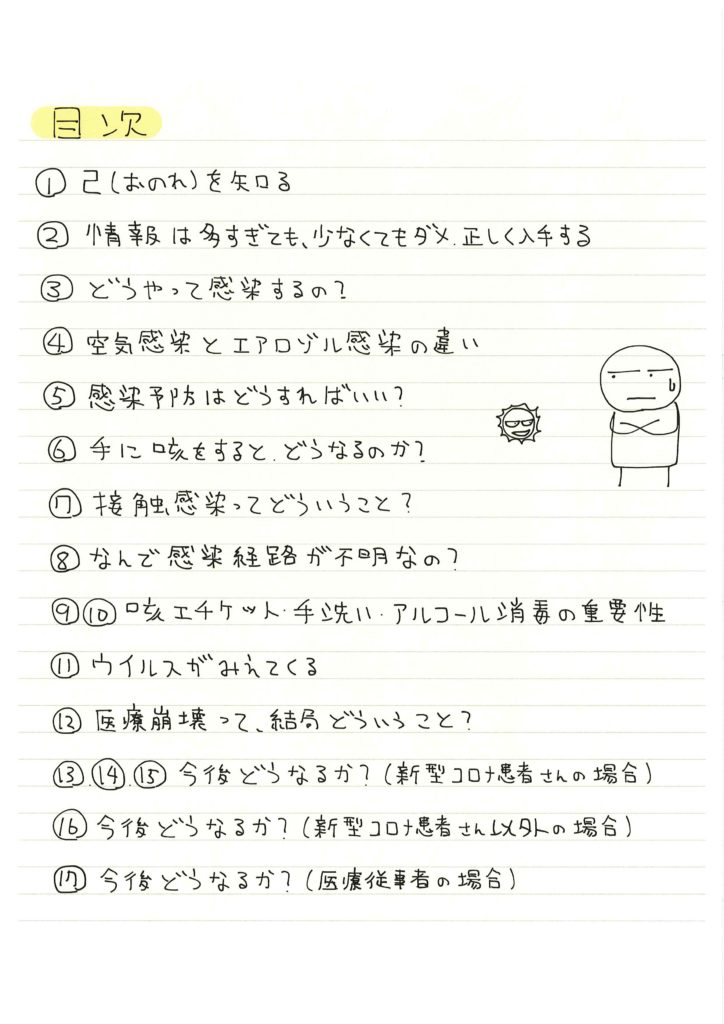 目次
① 己(おのれ)を知る
② 情報は多すぎても、少なくてもダメ.正しく入手する
③ どうやって感染するの?
④ 空気感染とエアロゾル感染の違い
⑤ 感染予防はどうすればいい?
⑥ 手に咳をすると.どうなるのか?
⑦ 接触感染ってどういうこと?
⑧ なんで感染経路が不明なの?
⑨⑩ 咳エチケット・手洗い・アルコール消毒の重要性
⑪ ウイルスがみえてくる
⑫ 医療崩壊って、結局どういうこと?
⑬.⑭.⑮ 今後どうなるか?(新型コロナ患者さんの場合)
⑯ 今後どうなるか?(新型コロナ患者さん以外の場合)
⑰ 今後どうなるか?(医療従事者の場合)